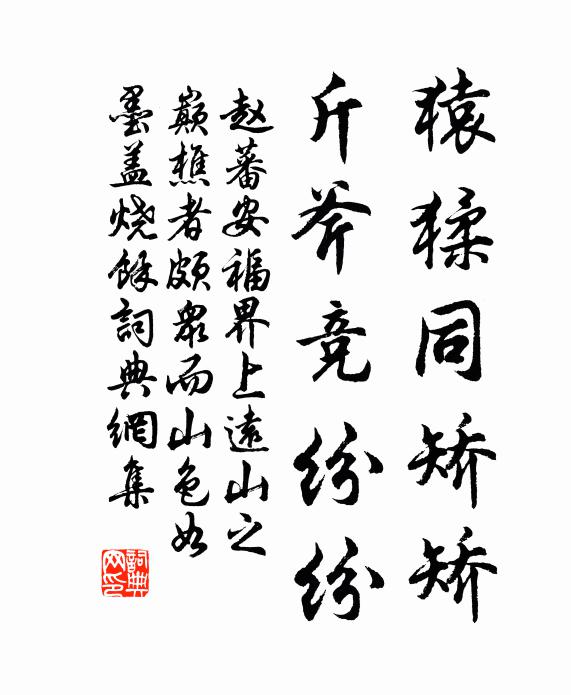 猿猱同矫矫
斤斧竞纷纷
赵蕃安福界上遠山之
巅樵者頗衆而山色如
墨盖烧餘詞典網集
詞典
网印